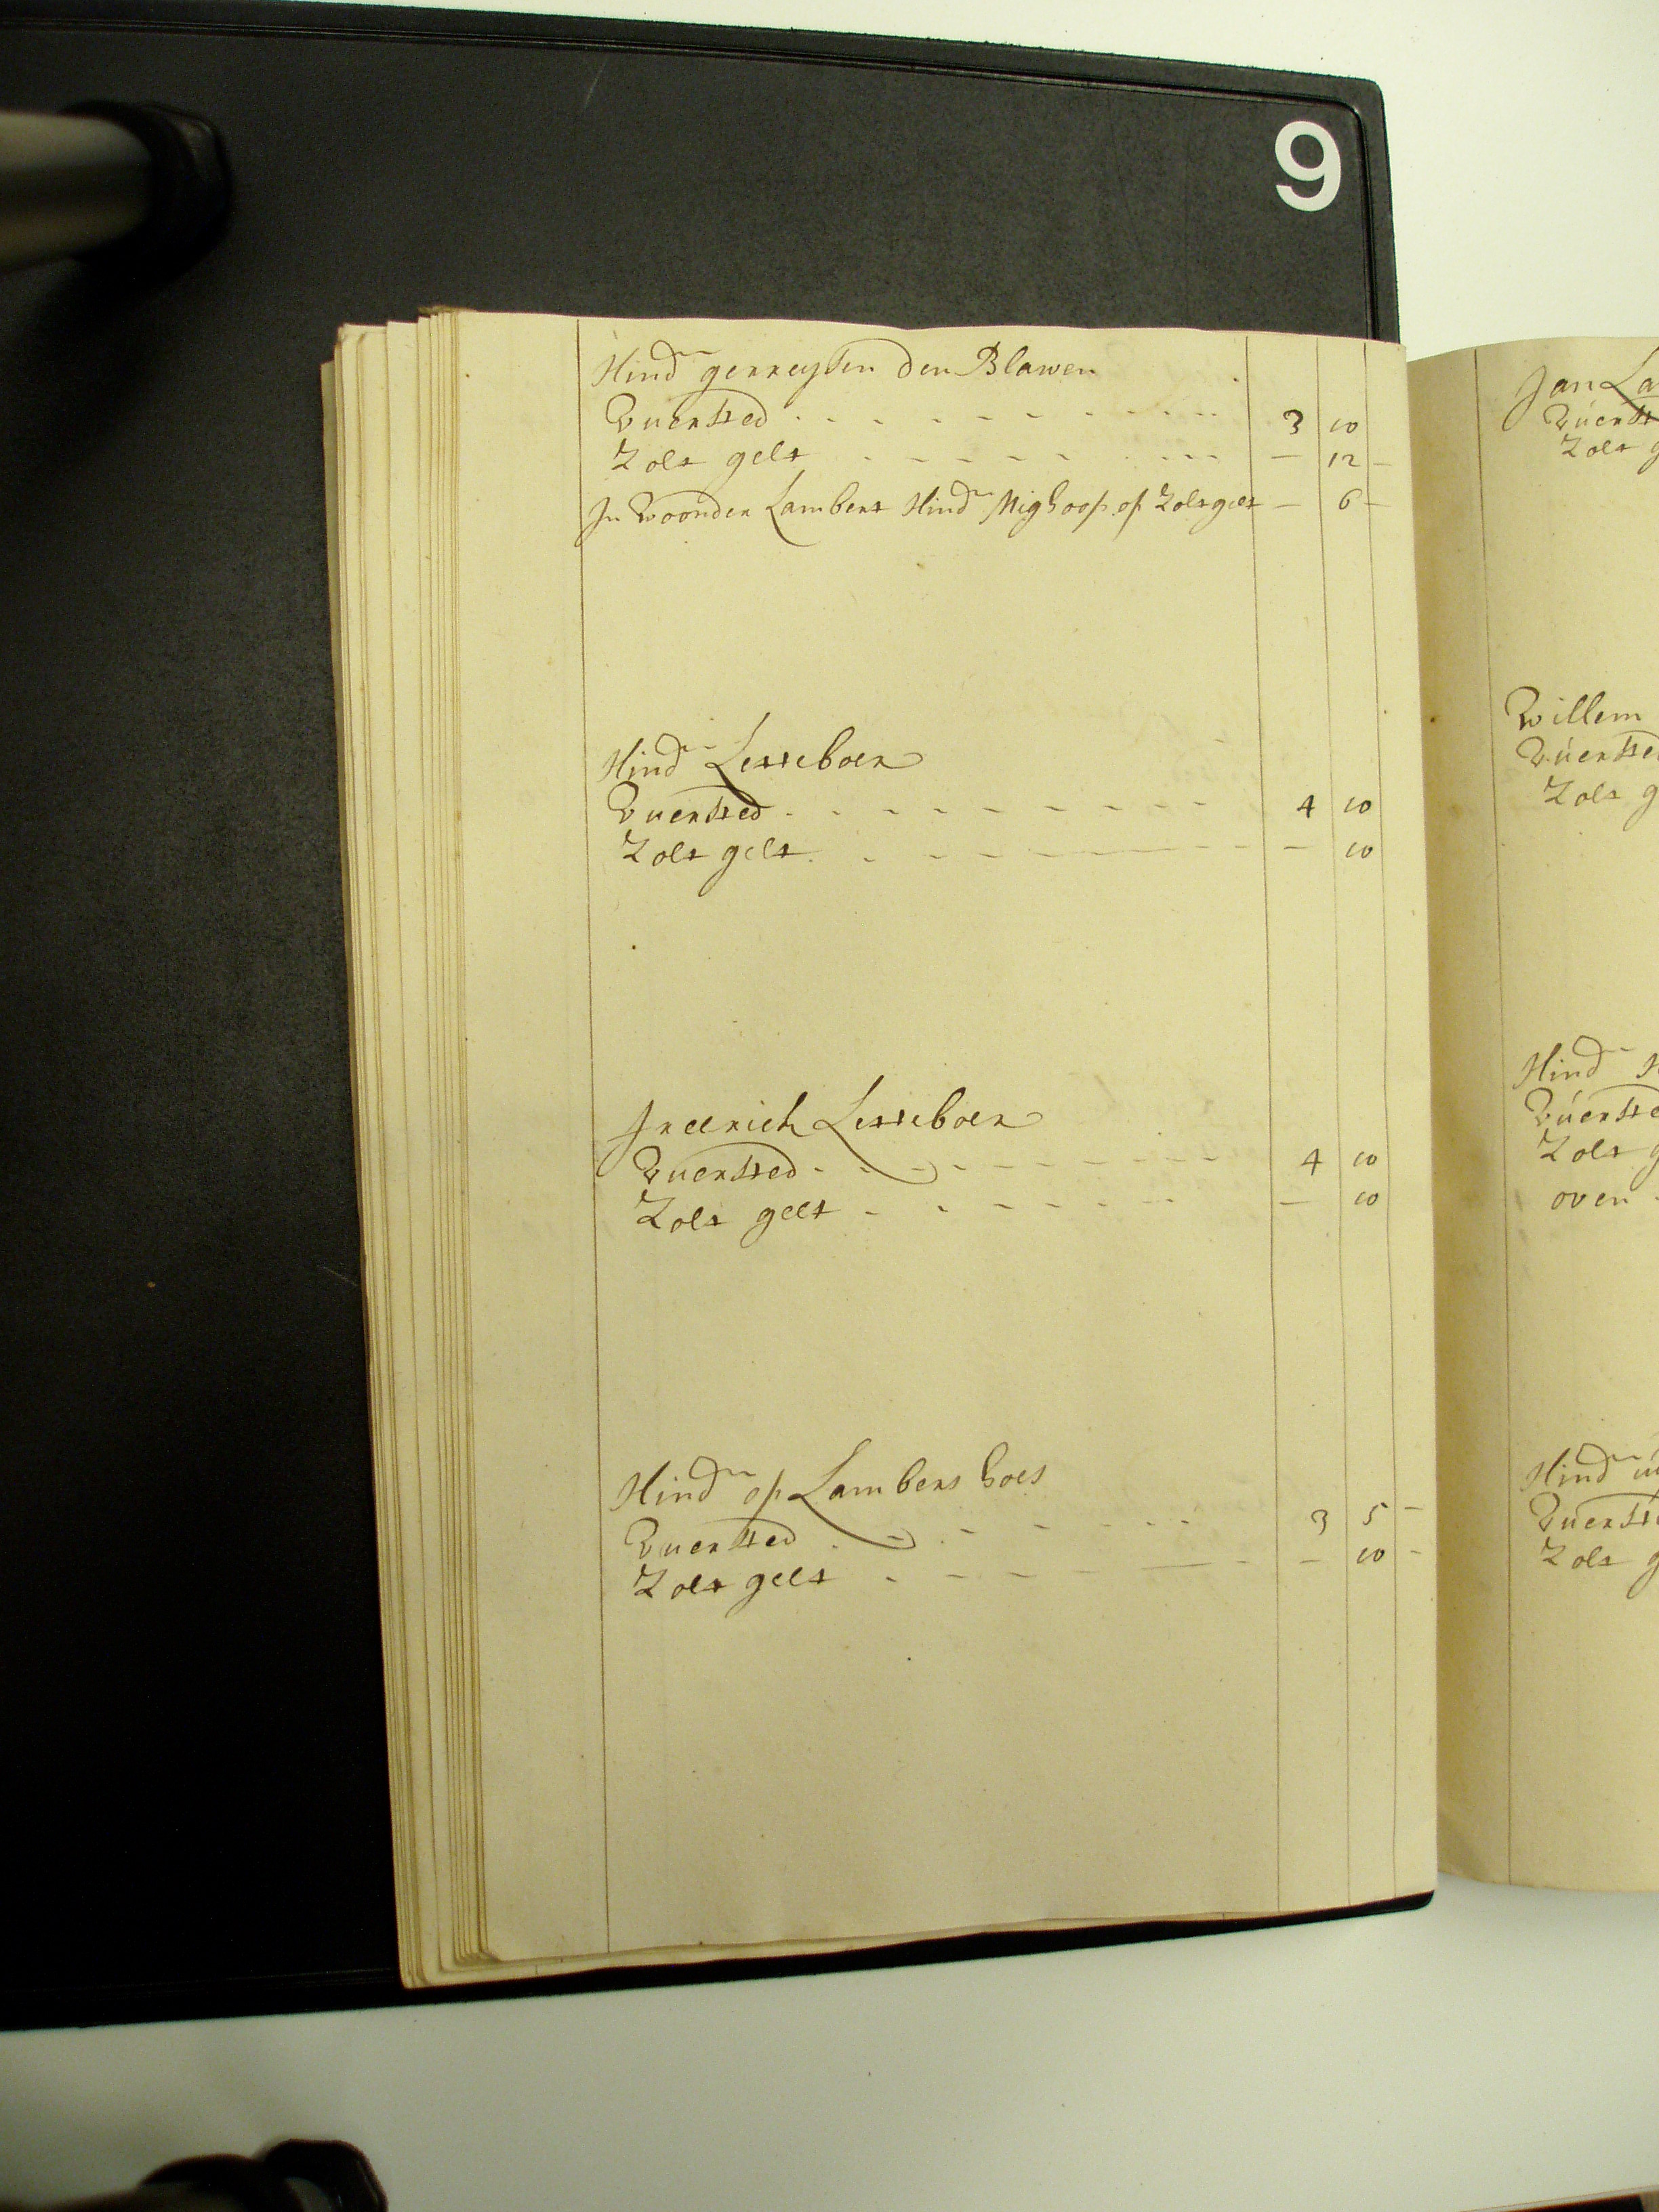 9
Hind gerreysen den Blawen
Vuersted 3 10
Zolt gelt — 12 —
In Woonder Lambert Hind Mighoop op Zoltgelt — 6 —
Hind Lesseboer
Vuersted 4 10
Zolt gelt — 10
Fredrich Lesseboer
Vuersted 4 10
Zolt gelt — 10
Hind op Lambers hoes
Vuersted 3 5 —
Zolt gelt — 10 —
Jan La
Vuerst
Zolt g
Willem
Vuersted
Zolt g
Hind H
Vuerste
Zolt g
oven
Hind
Vuerste
Zolt g